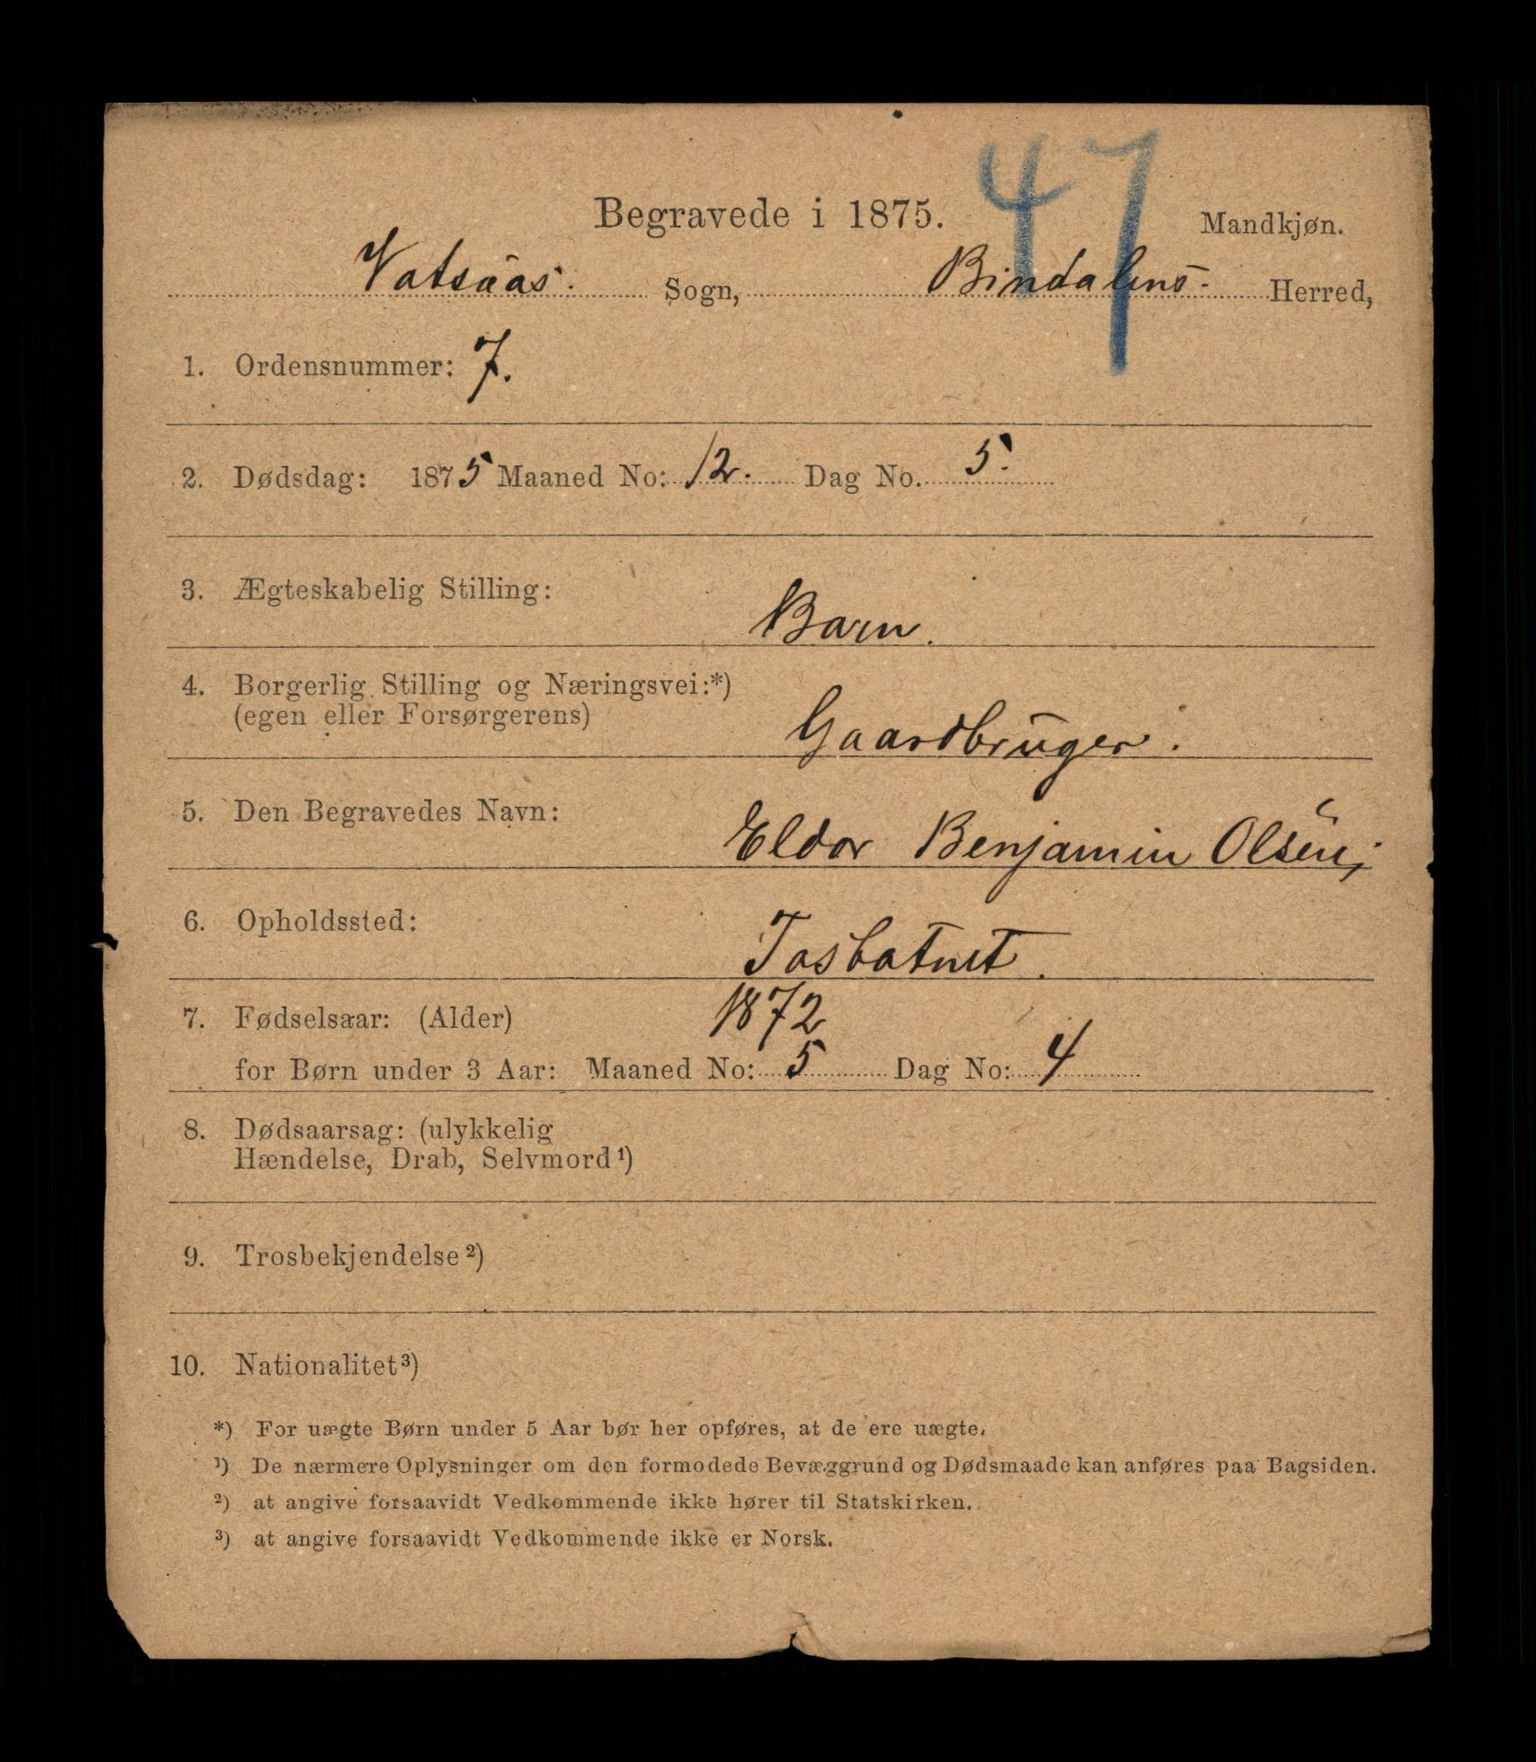 47
Begravede i 1875. Mandkjøn.
Vatsaas. Sogn, Bindalens Herred,
1. Ordensnummer: 7.
2. Dødsdag: 1875 Maaned No: 12. Dag No. 5.
3. Ægteskabelig Stilling: Barn.
4. Borgerlig Stilling og Næringsvei:*)
(egen eller Forsørgerens) Gaardbruger.
5. Den Begravedes Navn: Eldor Benjamin Olsen,
6. Opholdssted: Tosbotnet.
7. Fødselsaar: (Alder) 1872
for Børn under 3 Aar: Maaned No: 5 Dag No: 4
8. Dødsaarsag: (ulykkelig
Hændelse, Drab, Selvmord¹)
9. Trosbekjendelse²)
10. Nationalitet³)
*) For uægte Børn under 5 Aar bør her opføres, at de ere uægte.
¹) De nærmere Oplysninger om den formodede Bevæggrund og Dødsmaade kan anføres paa Bagsiden.
²) at angive forsaavidt Vedkommende ikke hører til Statskirken.
³) at angive forsaavidt Vedkommende ikke er Norsk.